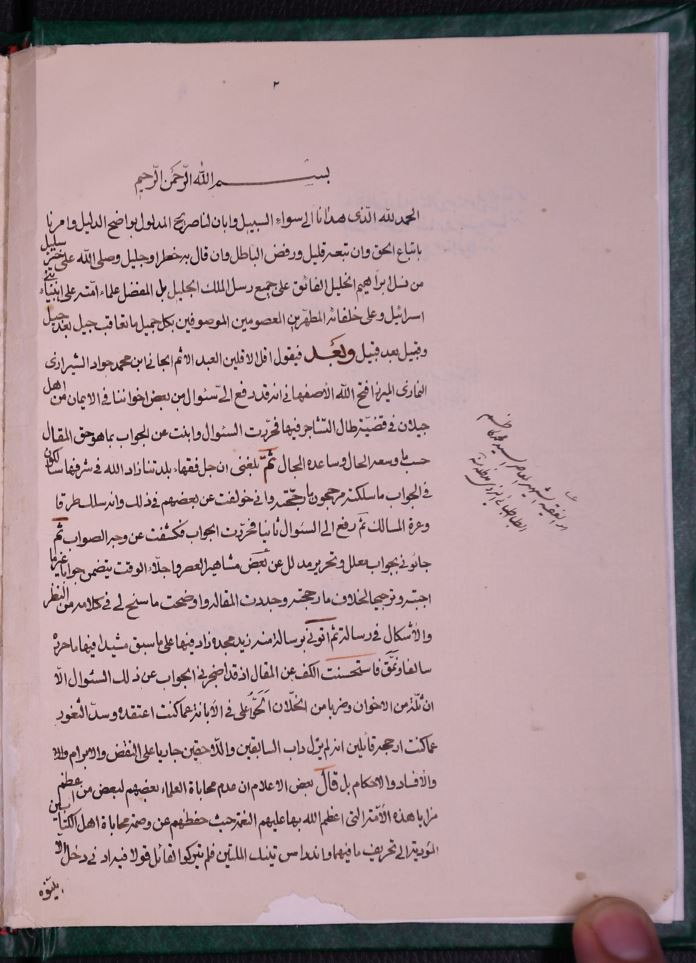 ٢
بسم الله الرّحمن الرّحيم
الحمد لله الّذى هدانا الى سواء السبيل وابان لنا صريح المدلول بواضح الدليل وامرنا
باتباع الحق وان تبعه قليل ورفض الباطل وان قال به خطير او جليل وصلى الله على خير سليل
من نسل ابراهيم الخليل الفائق على جميع رسل الملك الجليل بل المفضل علماء امّته على انبياء بنى
اسرائيل وعلى خلفائه المطهرين المعصومين الموصوفين بكل جميل ما تعاقب جيل بعد جيل
وقبيل بعد قبيل وبعد فيقول اقل الاقلين العبد الاثم الجانى ابن محمد جواد الشيرازى
النمازى الميرزا فتح الله الاصفهانى انه قد دفع الىّ سئوال من بعض اخواننا فى الايمان من اهل
جيلان فى قضيّة طال التشاجر فيها فحرّرت السئوال وابنت عن الجواب بما هو حق المقال
حسب ما وسعه الحال وساعده المجال ثمّ بلغنى ان جل فقهاء بلدتنا زاد الله فى شرفها سالكون
فى الجواب ما سلكته مرجحون ما رجّحته وانى خولفت عن بعضهم فى ذلك وانه سلك طرقا
وعرة المسالك ثمّ رفع الى السئوال ثانيا فحرّرت الجواب فكشفت عن وجه الصواب ثم
جائونى بجواب معلل وتحرير مدلل عن بعض مشاهير العصر واجلاء الوقت يتضمن جوابا غير ما
اجبته وترجيحا لخلاف ما رجحته وجددت المقاله واوضحت ما سنح لى فى كلامه من النظر
والاشكال فى رسالة ثم اتونى برسالة منه زيد مجده زاد فيها على ما سبق مشيدا فيها ما حرره
سالفا ونمّق فاستحسنت الكف عن المقال اذ قد اضجرنى الجواب عن ذلك السئوال الّا
ان ثلة من الاخوان وضربا من الخلّان الحّوا على فى الابانة عما كنت اعتقده وسدّ الثغور
عما كنت ارجحه قائلين انه لم يزل داب السابقين واللاحقين جاريا على النقض والابرام
والافساد والاحكام بل قال بعض الاعلام ان عدم محاباة العلماء بعضهم لبعض من اعظم
مزايا هذه الامّة التى اعظم الله بها عليهم النعمة حيث حفظهم عن وصمة محاباة اهل الكتابين
المؤدية الى تحريف ما فيهما واندراس تينك الملتين فلم يتركوا لقائل قولا فيه ادنى دخل الّا
بيّنوه